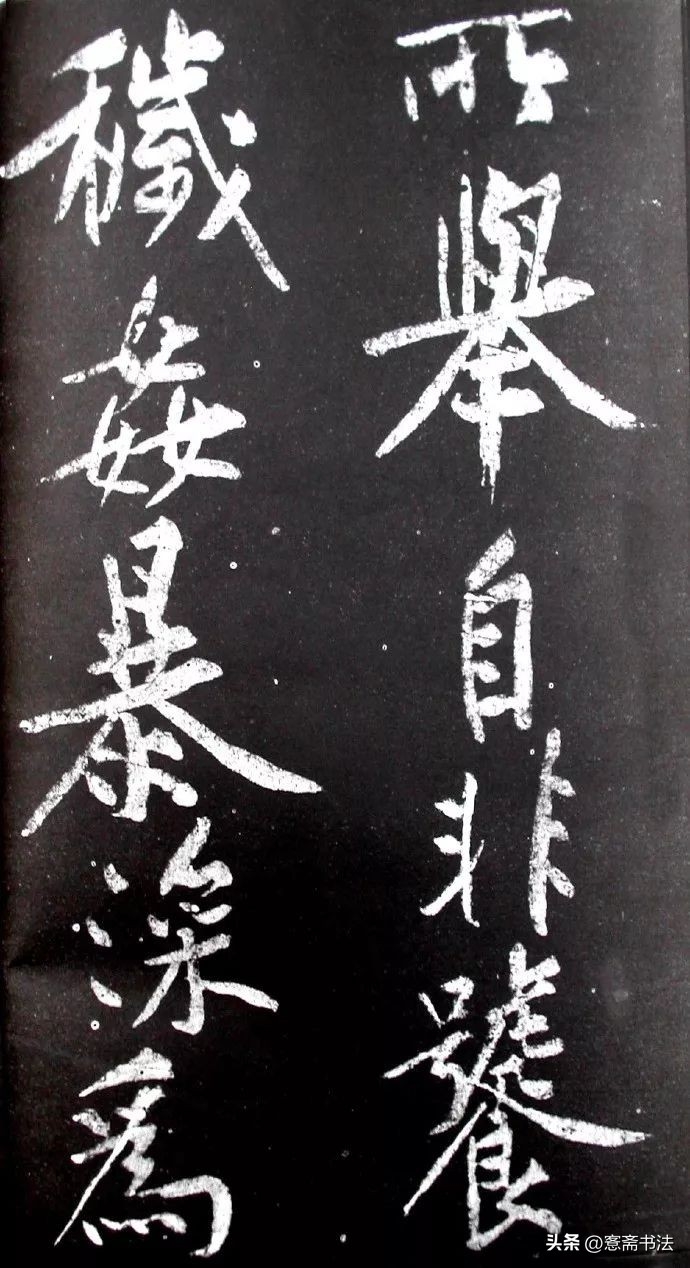 所舉自非饕
穢姦暴深爲
头条 @愙斋书法